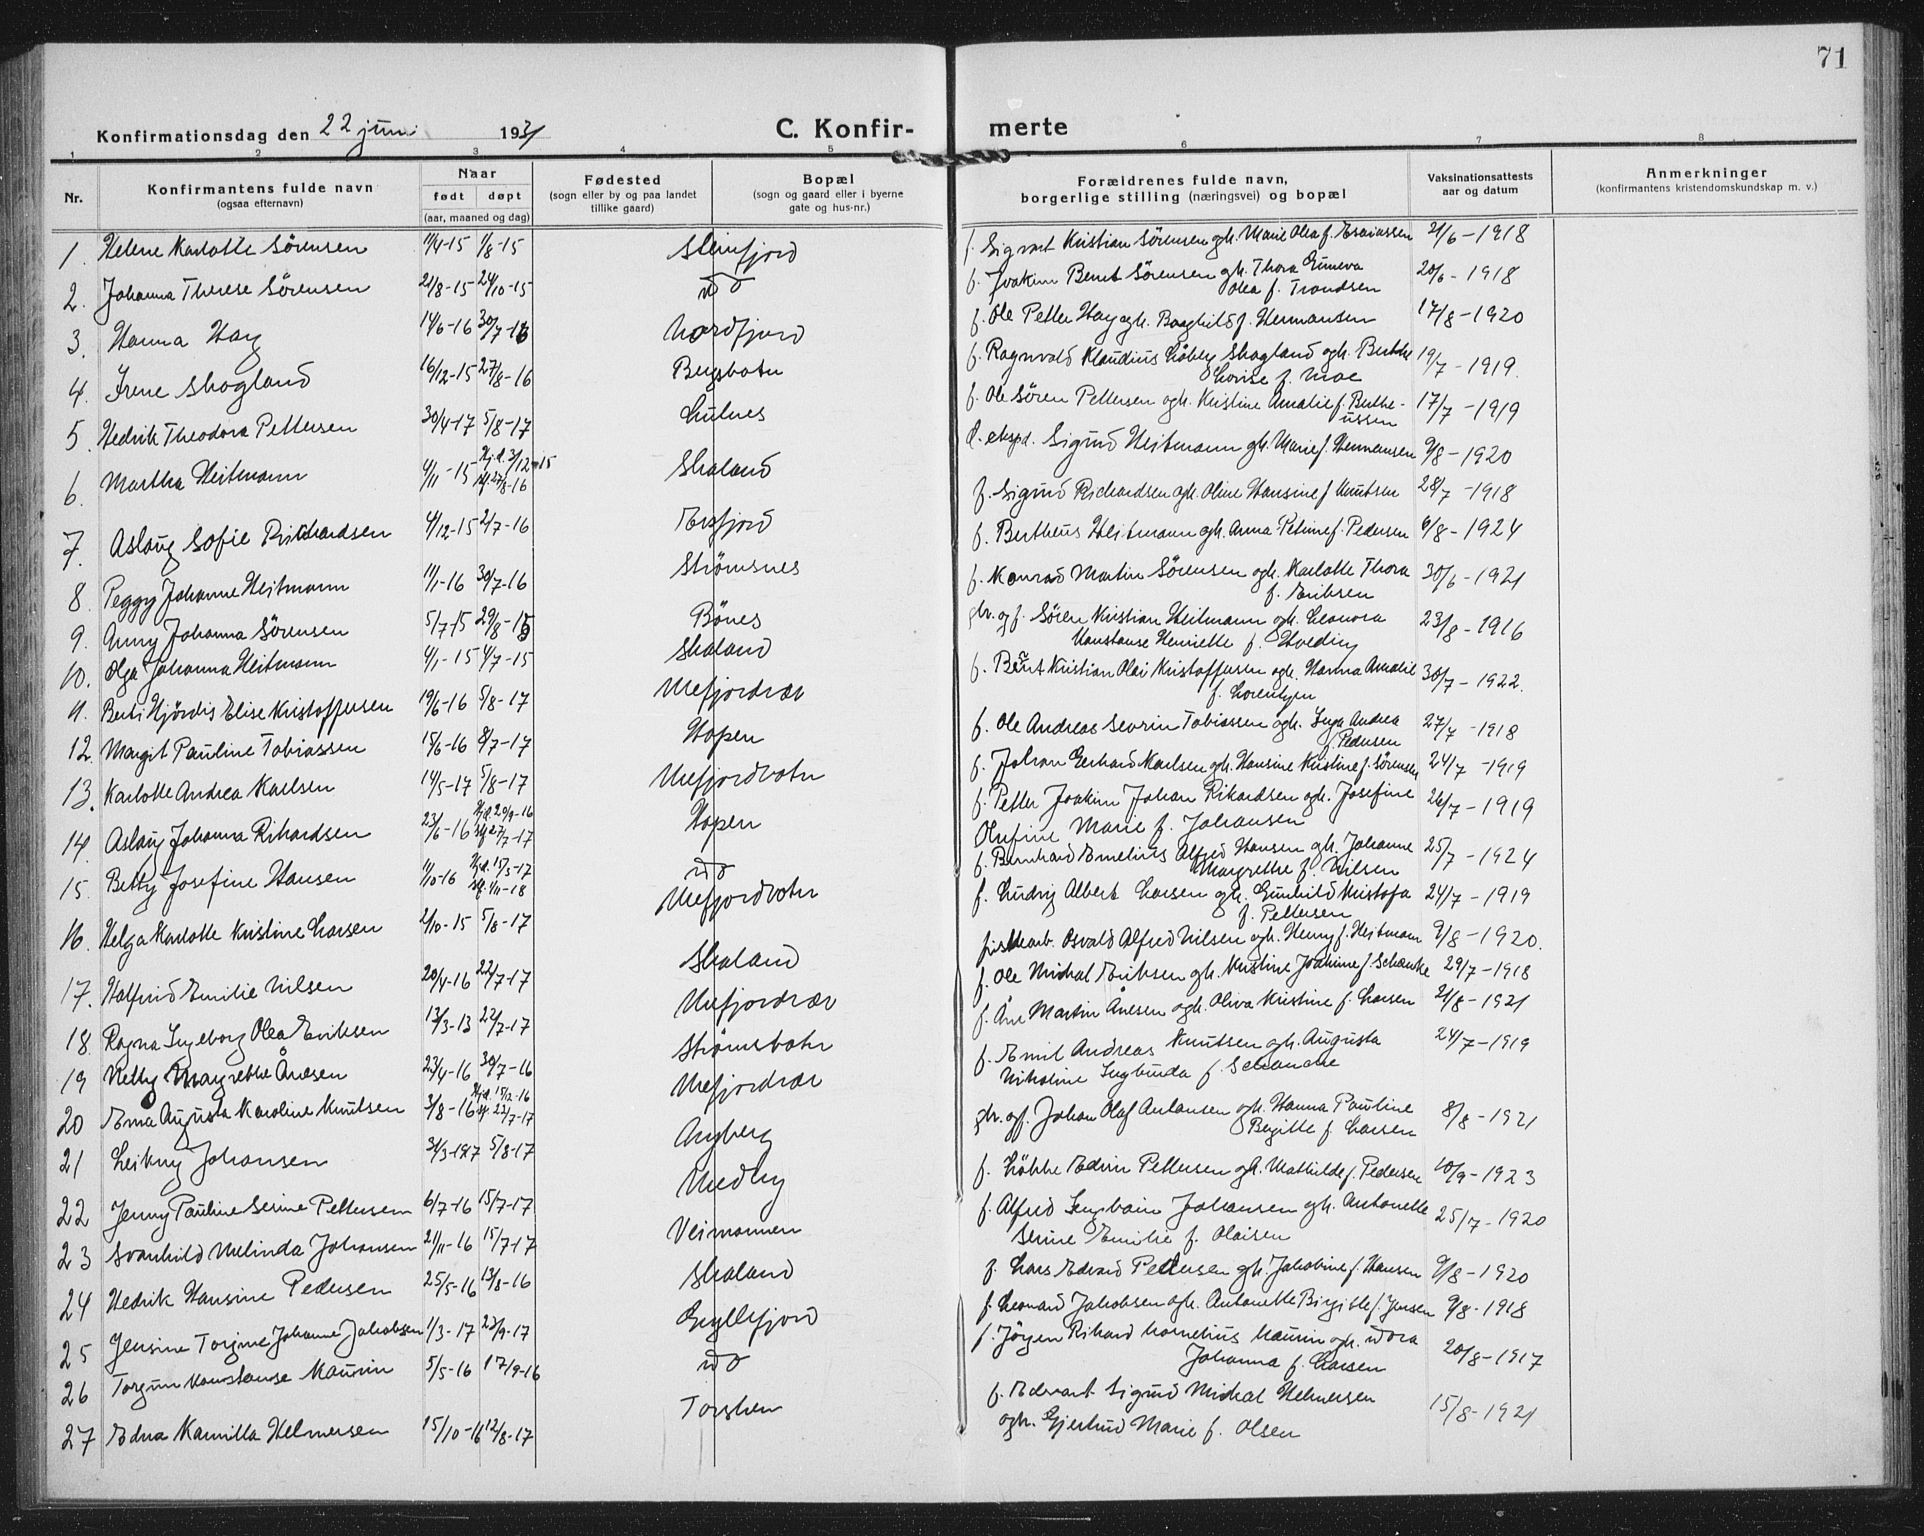 71
Konfirmationsdag den 22 juni 1931
C. Konfir- merte
1 2 3 4 5 6 7 8
Nr.
Konfirmantens fulde navn
(ogsaa efternavn)
Naar
født døpt
(aar, maaned og dag)
Fødested
(sogn eller by og paa landet
tillike gaard)
Bopæl
(sogn og gaard eller i byerne
gate og hus-nr.)
Forældrenes fulde navn,
borgerlige stilling (næringsvei) og bopæl
Vaksinationsattests
aar og datum
Anmerkninger
(konfirmantens kristendomskundskap m. v.)
1. Helene Karlotte Sørensen Steinfjord f. Sigvart Kristian Sørensen og h. Marie Olea f. Esaiassen 21/6-1918
2. Johanna Therese Sørensen 21/8-15 24/10-15 f. Joakim Bernt Sørensen og h. Thora 20/6-1918
Olea f. Trondsen
3. Hanna Hay 14/6-16 30/7-16 Nordfjord f. Ole Petter Hay og h. Borghild f. Hermansen 17/8-1920
4. Irene Skogland 16/12-15 27/8-16 Bergsbotn f. Ragnvald Klaudius Løberg Skogland og h. Berthe 19/7-1919.
Lovise f. Moe
5. Hedrik Theodora Pettersen 30/4-17 5/8-17 f. Ole Søren Pettersen og h. Kristine Amalie f. Berthe- 17/7-1919
ussen
6. Martha Heitmann 4/11-15 Hj.d. 3/12-15 Skaland eksp. Sigurd Heitmann og h. Marie f. Hermansen 9/8-1920
7. Aslaug Sofie Rikhardsen 4/12-15 2/7-16 Ersfjord f. Sigurd Richardsen og h. Oline Hansine f. Knutsen 28/7-1918
8. Peggy Johanne Heitmann 11/1-16 30/7-16 Strømsnes f. Bertheus Heitmann og h. Anna Petrine f. Pedersen 9/8-1924
9. Anny Johanna Sørensen 5/7-15 29/8-15 Bønes f. Konrad Martin Sørensen og h. Karlotte Thora 30/6-1921
f. Eriksen
10. Olga Johanna Heitmann 4/1-15 4/7-15 Skaland gbr. og f. Søren Kristian Heitmann og h. Leonora 23/8-1916
Konstanse Henriette f. Hveding
11. Berti Hjørdis Elise Kristoffersen 19/6-16 5/8-17 Mefjordvær f. Bernt Kristian Olai Kristoffersen og h. Hanna Amalie 30/7-1922.
f. Lorentzen
12. Margit Pauline Tobiassen 15/6-16 8/7-17 Hopen f. Ole Andreas Sevrin Tobiassen og h. Inga Andrea 27/7-1918
f. Pedersen
13. Karlotte Andrea Karlsen 14/5-17 5/8-17 Mefjordbotn f. Johan Gerhard Karlsen og h. Hansine Kristine f. Sørensen 24/7-1919
14. Aslaug Johanna Rikardsen 23/6-16 Hj.d. 20/9-16 Hopen f. Petter Joakim Johan Rikardsen og h. Josefine 26/7-1919
Olufine Marie f. Johansen
15. Betty Josefine Hansen 1/10-16 Hj.d. 15/3-17 f. Bernhard Emelius Alfred Hansen og h. Johanne 25/7-1924
Margrethe f. Nilsen
16. Helga Karlotte Kristine Larsen 2/10-15 5/8-17 Mefjordbotn f. Ludvig Albert Larsen og h. Gunhild Kristofa 24/7-1919
f. Pettersen
17. Halfrid Emilie Nilsen 20/4-16 22/7-17 Skaland fiskearb. Osvald Alfred Nilsen og h. Henny f. Heitmann 9/8-1920.
18. Ragna Ingeborg Olea Eriksen 13/3-13 22/7-17 Mefjordvær f. Ole Mikal Eriksen og h. Kristine Joakime f. Schancke 29/7-1918
19 Nelly Margrethe Ånesen 23/4-16 30/7-16 Strømsbotn f. Åne Martin Ånesen og h. Oliva Kristine f. Larsen 21/8-1921
20 Erna Augusta Karoline Knutsen 3/8-16 Hj.d. 15/12-16 22/7-17 Mefjordvær f. Emil Andreas Knutsen og h. Augusta 24/7-1919
Nikoline f. Schancke
21 Leikny Johansen 31/3-1917 5/8-17 gbr. og f. Johan Olaf Johansen og h. Hanna Pauline 8/8-1921
Birgitte f. Larsen
22 Jenny Pauline Serine Pettersen 6/7-16 15/7-17 Medby f. Løkke Edvin Pettersen og h. Mathilde f. Pedersen 10/9-1923
23 Svanhild Melinda Johansen 21/11-16 15/7-17 Veimannen f. Alfred Johansen og h. Antonette 25/7-1920
Serine Emilie f. Olaisen
24 Hedrik Hansine Pedersen 25/5-16 13/8-16 Skaland f. Lars Edvard Pedersen og h. Jakobine f. Hansen 9/8-1920
25 Jensine Torgine Johanne Jakobsen 1/3-17 23/9-17 Gryllefjord f. Leonard Jakobsen og h. Antonette Birgitte f. Jensen 9/8-1918
26 Torgun Konstanse Maurin 5/5-16 17/9-16 f. Jørgen Rikard Kornelius Maurin og h. 20/8-1917
Johanna f. Larsen
27 Edna Kamilla Helmersen 15/10-16 12/8-17 Torsken f. Edvart Sigurd Mikal Helmersen 15/8-1921
og h. Gjertrud Marie f. Olsen